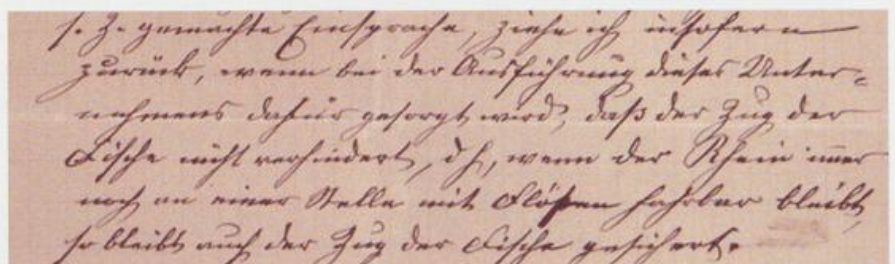 s. Z. gemachte Einsprache, ziehe ich insofern
zurück, wenn bei der Ausführung dieses Unter=
nehmens dafür gesorgt wird, daß der Zug der
Fische nicht verhindert, d h, wenn der Rhein immer
noch an einer Stelle mit Flößen fahrbar bleibt,
so bleibt auch der Zug der Fische gesichert.